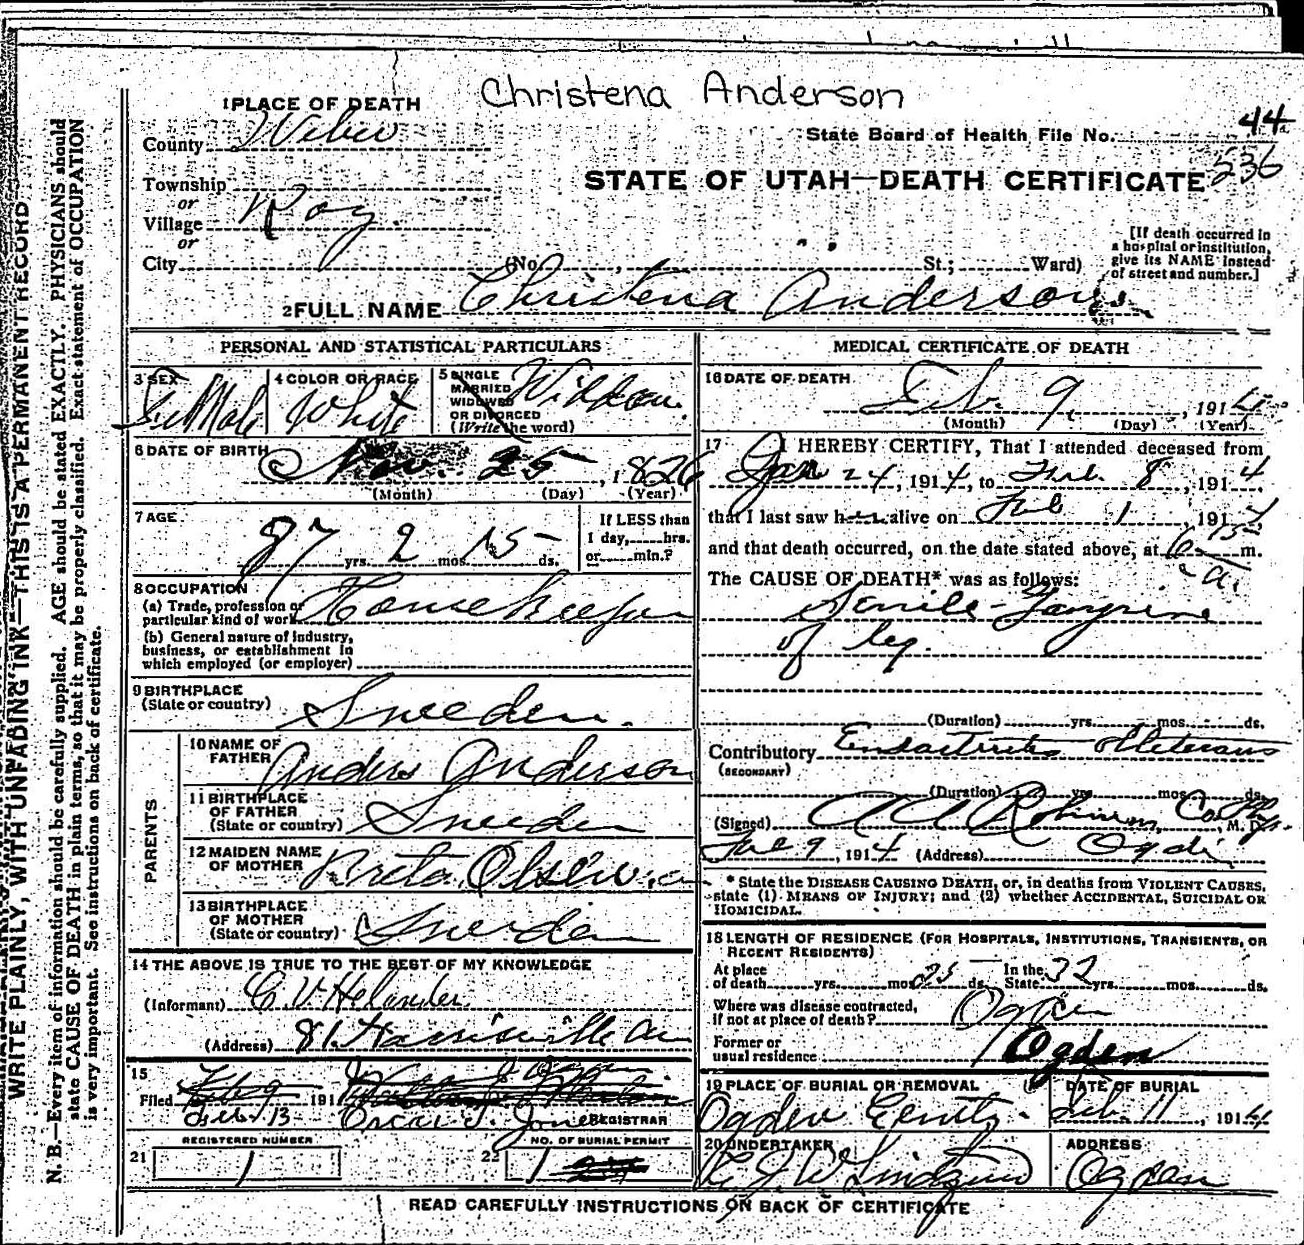 Christena Anderson
1 PLACE OF DEATH
County Weber
State Board of Health File No. 44
536
STATE OF UTAH—DEATH CERTIFICATE
Township
or
Village Roy.
or
City (No. , St.; Ward)
[If death occurred in
a hospital or institution,
give its NAME instead
of street and number.]
2 FULL NAME Christena Anderson
PERSONAL AND STATISTICAL PARTICULARS
3 SEX
FeMale
4 COLOR OR RACE
White
5 SINGLE
MARRIED
WIDOWED
OR DIVORCED
(Write the word)
Widow.
6 DATE OF BIRTH
Nov. 25, 1826
(Month) (Day) (Year)
7 AGE
87 yrs. 2 mos. 15 ds.
If LESS than
1 day, hrs.
or min.?
8 OCCUPATION
(a) Trade, profession or
particular kind of work Housekeeper
(b) General nature of industry,
business, or establishment in
which employed (or employer)
9 BIRTHPLACE
(State or country) Sweeden.
PARENTS
10 NAME OF
FATHER Anders Anderson
11 BIRTHPLACE
OF FATHER
(State or country) Sweeden
12 MAIDEN NAME
OF MOTHER
13 BIRTHPLACE
OF MOTHER
(State or country) Sweeden
14 THE ABOVE IS TRUE TO THE BEST OF MY KNOWLEDGE
(Informant) C. V. Helander
(Address) 81. Harrisville Av
15
Filed Feb. 13 191
Oscar J. Jones REGISTRAR
REGISTERED NUMBER
21 1
NO. OF BURIAL PERMIT
22 1
MEDICAL CERTIFICATE OF DEATH
16 DATE OF DEATH
Feb. 9, 1914
(Month) (Day) (Year)
17 I HEREBY CERTIFY, That I attended deceased from
Jan 24, 1914, to Feb. 8, 1914,
that I last saw h alive on Feb 1 1914,
and that death occurred, on the date stated above, at 6 15 m.
a.
The CAUSE OF DEATH* was as follows:
Senile-Gangrine
of leg.
(Duration) yrs. mos. ds.
Contributory
(SECONDARY)
(Duration) yrs. mos. ds.
(Signed) A A Robinson, Co Phys. M. D.
Feb 9, 1914 (Address) Ogden
* State the DISEASE CAUSING DEATH, or, in deaths from VIOLENT CAUSES,
state (1) MEANS OF INJURY; and (2) whether ACCIDENTAL, SUICIDAL OR
HOMICIDAL.
18 LENGTH OF RESIDENCE (FOR HOSPITALS, INSTITUTIONS, TRANSIENTS, OR
RECENT RESIDENTS)
At place
of death yrs. mos. 25 ds.
In the
State 32 yrs. mos. ds.
Where was disease contracted,
If not at place of death? Ogden
Former or
usual residence Ogden
19 PLACE OF BURIAL OR REMOVAL
Ogden
DATE OF BURIAL
Feb. 11, 1914
20 UNDERTAKER
ADDRESS
Ogden
READ CAREFULLY INSTRUCTIONS ON BACK OF CERTIFICATE
WRITE PLAINLY, WITH UNFADING INK—THIS IS A PERMANENT RECORD
N. B.—Every item of information should be carefully supplied. AGE should be stated EXACTLY. PHYSICIANS should
state CAUSE OF DEATH in plain terms, so that it may be properly classified. Exact statement of OCCUPATION
is very important. See instructions on back of certificate.